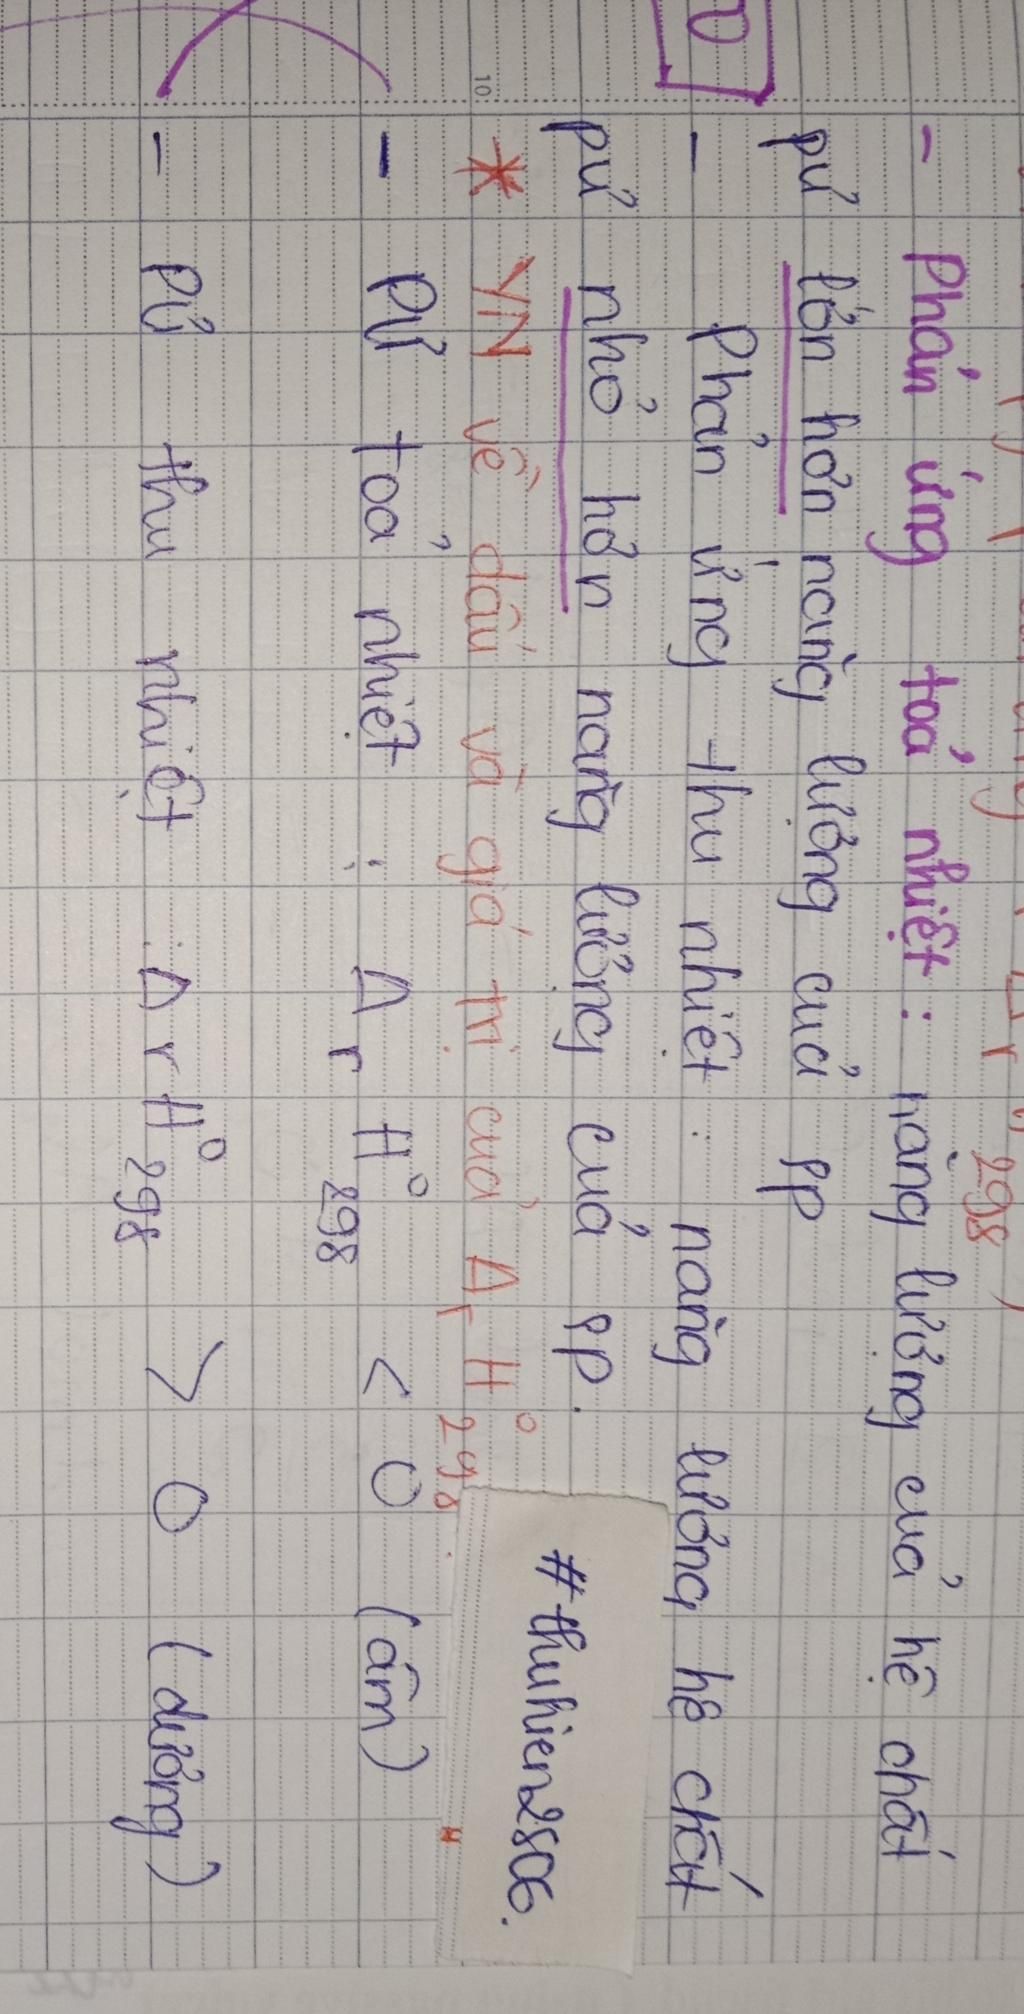 298
- Phản ứng toả nhiệt: năng lượng của hệ chất
pứ lớn hơn năng lượng của sp
- Phản ứng thu nhiệt: năng lượng hệ chất
pứ nhỏ hơn năng lượng của sp.
* YN về dấu và giá trị của ΔrH°298.
#thuhien2806.
- Pứ toả nhiệt : ΔrH°298 < 0 (âm)
- Pứ thu nhiệt : ΔrH°298 > 0 (dương)
10